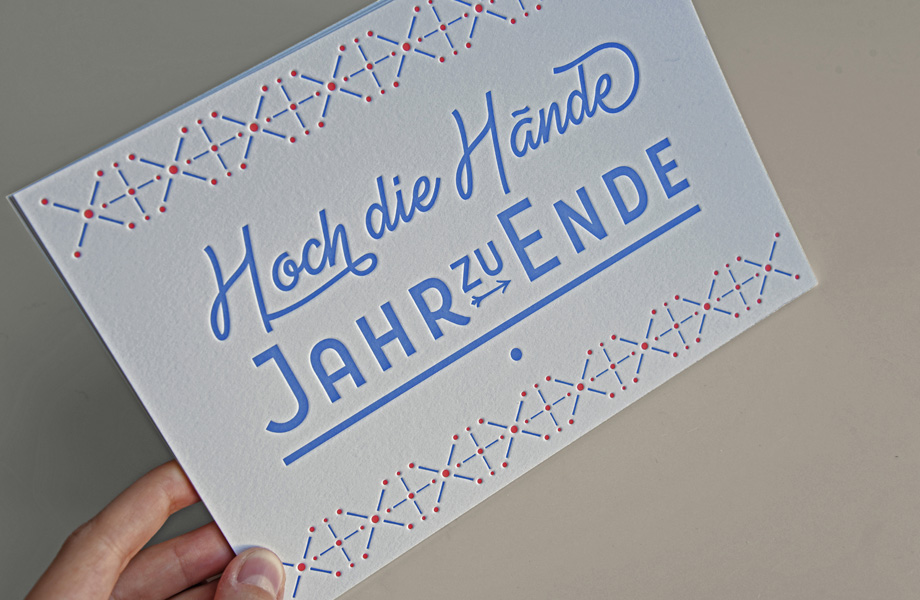 Hoch die Hände
JAHR ZU ENDE